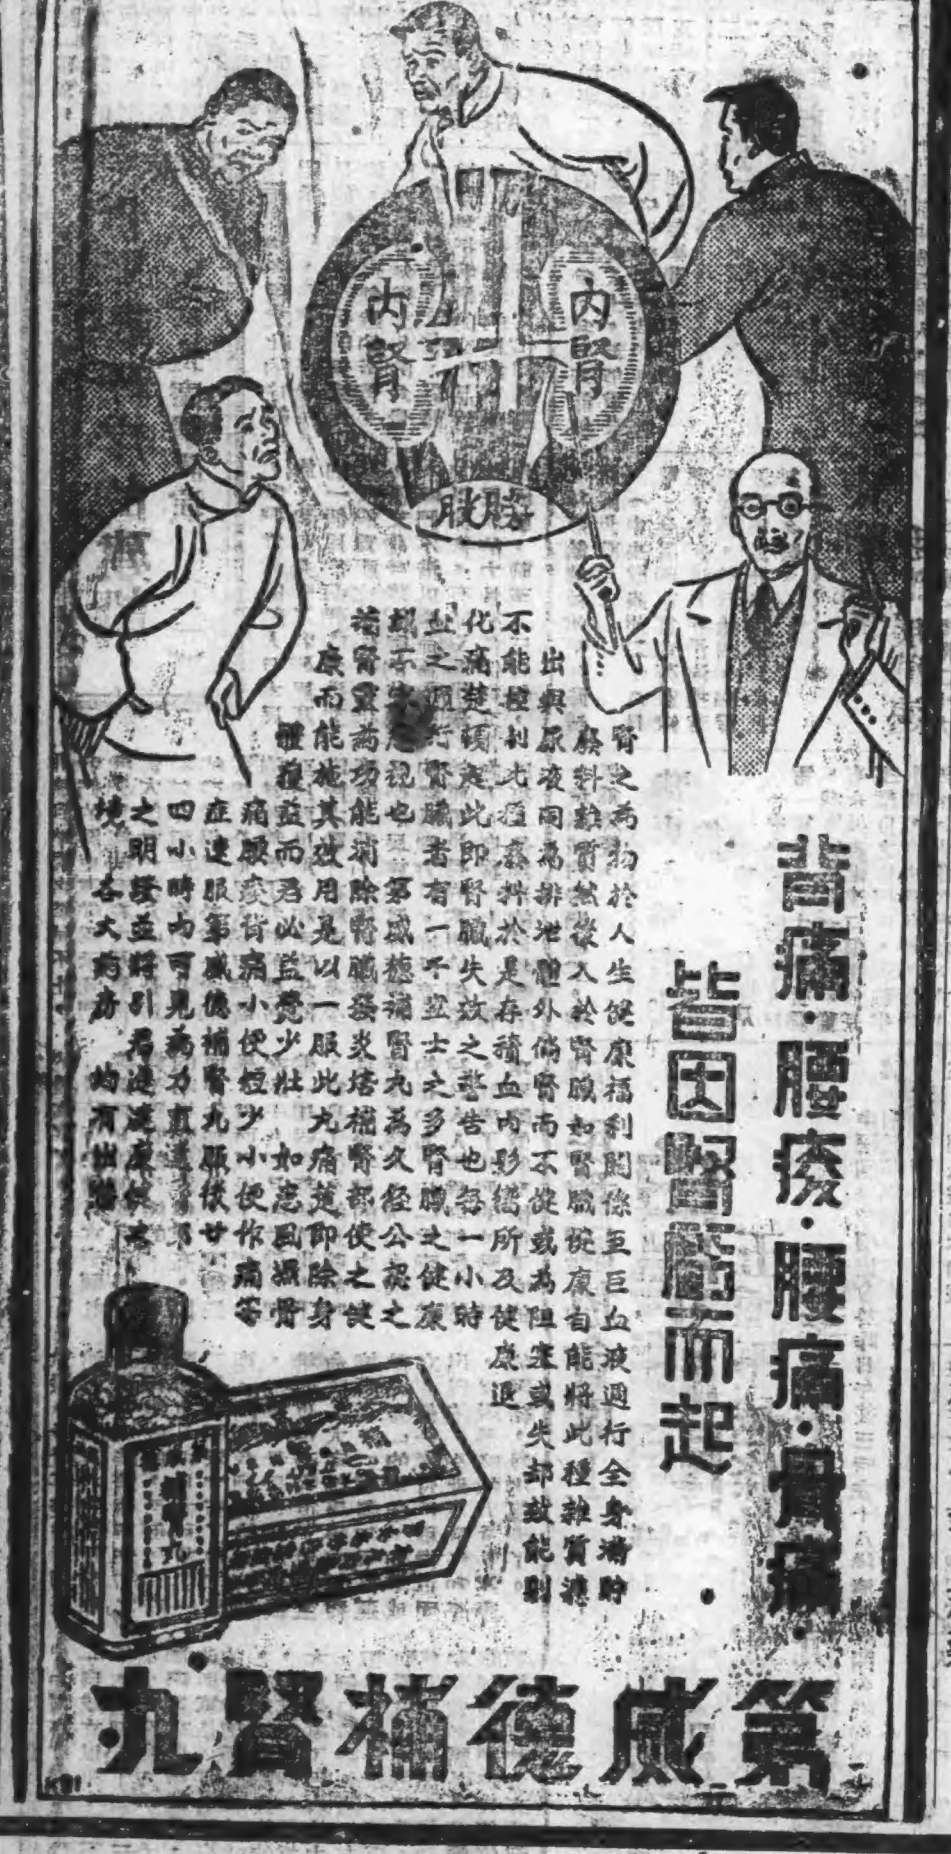 背痛·腰痠·腰痛·骨痛·
皆因腎臟而起
內腎
內腎
膀胱
腎之為物於人生健康福利關係至巨血液週行全身瀦貯
廢料雜質然後入於腎臟如腎臟健康自能將此種雜質濾
出與尿液同為排泄體外倘腎而不健或為阻塞或失却效能則
不能輕利此種廢料於是存積血內影響所及健康退
化痛楚頓起此即腎臟失效之警告也每一小時
血之週行腎臟者有一千立士之多腎臟之健康
不容忽視也 第威德補腎丸為久經公認之
補腎靈藥功能消除腎臟發炎培補腎部使之健
康而能施其效用是以一服此丸痛楚即除身
體獲益而君必益覺少壯 如患風濕骨
痛腰痠背痛小便短少小便作痛等
症速服第威德補腎丸服後廿
四小時內可見藥力直達
之明證並將引君達健康
境 各大藥房 均有出售
第威德補腎丸